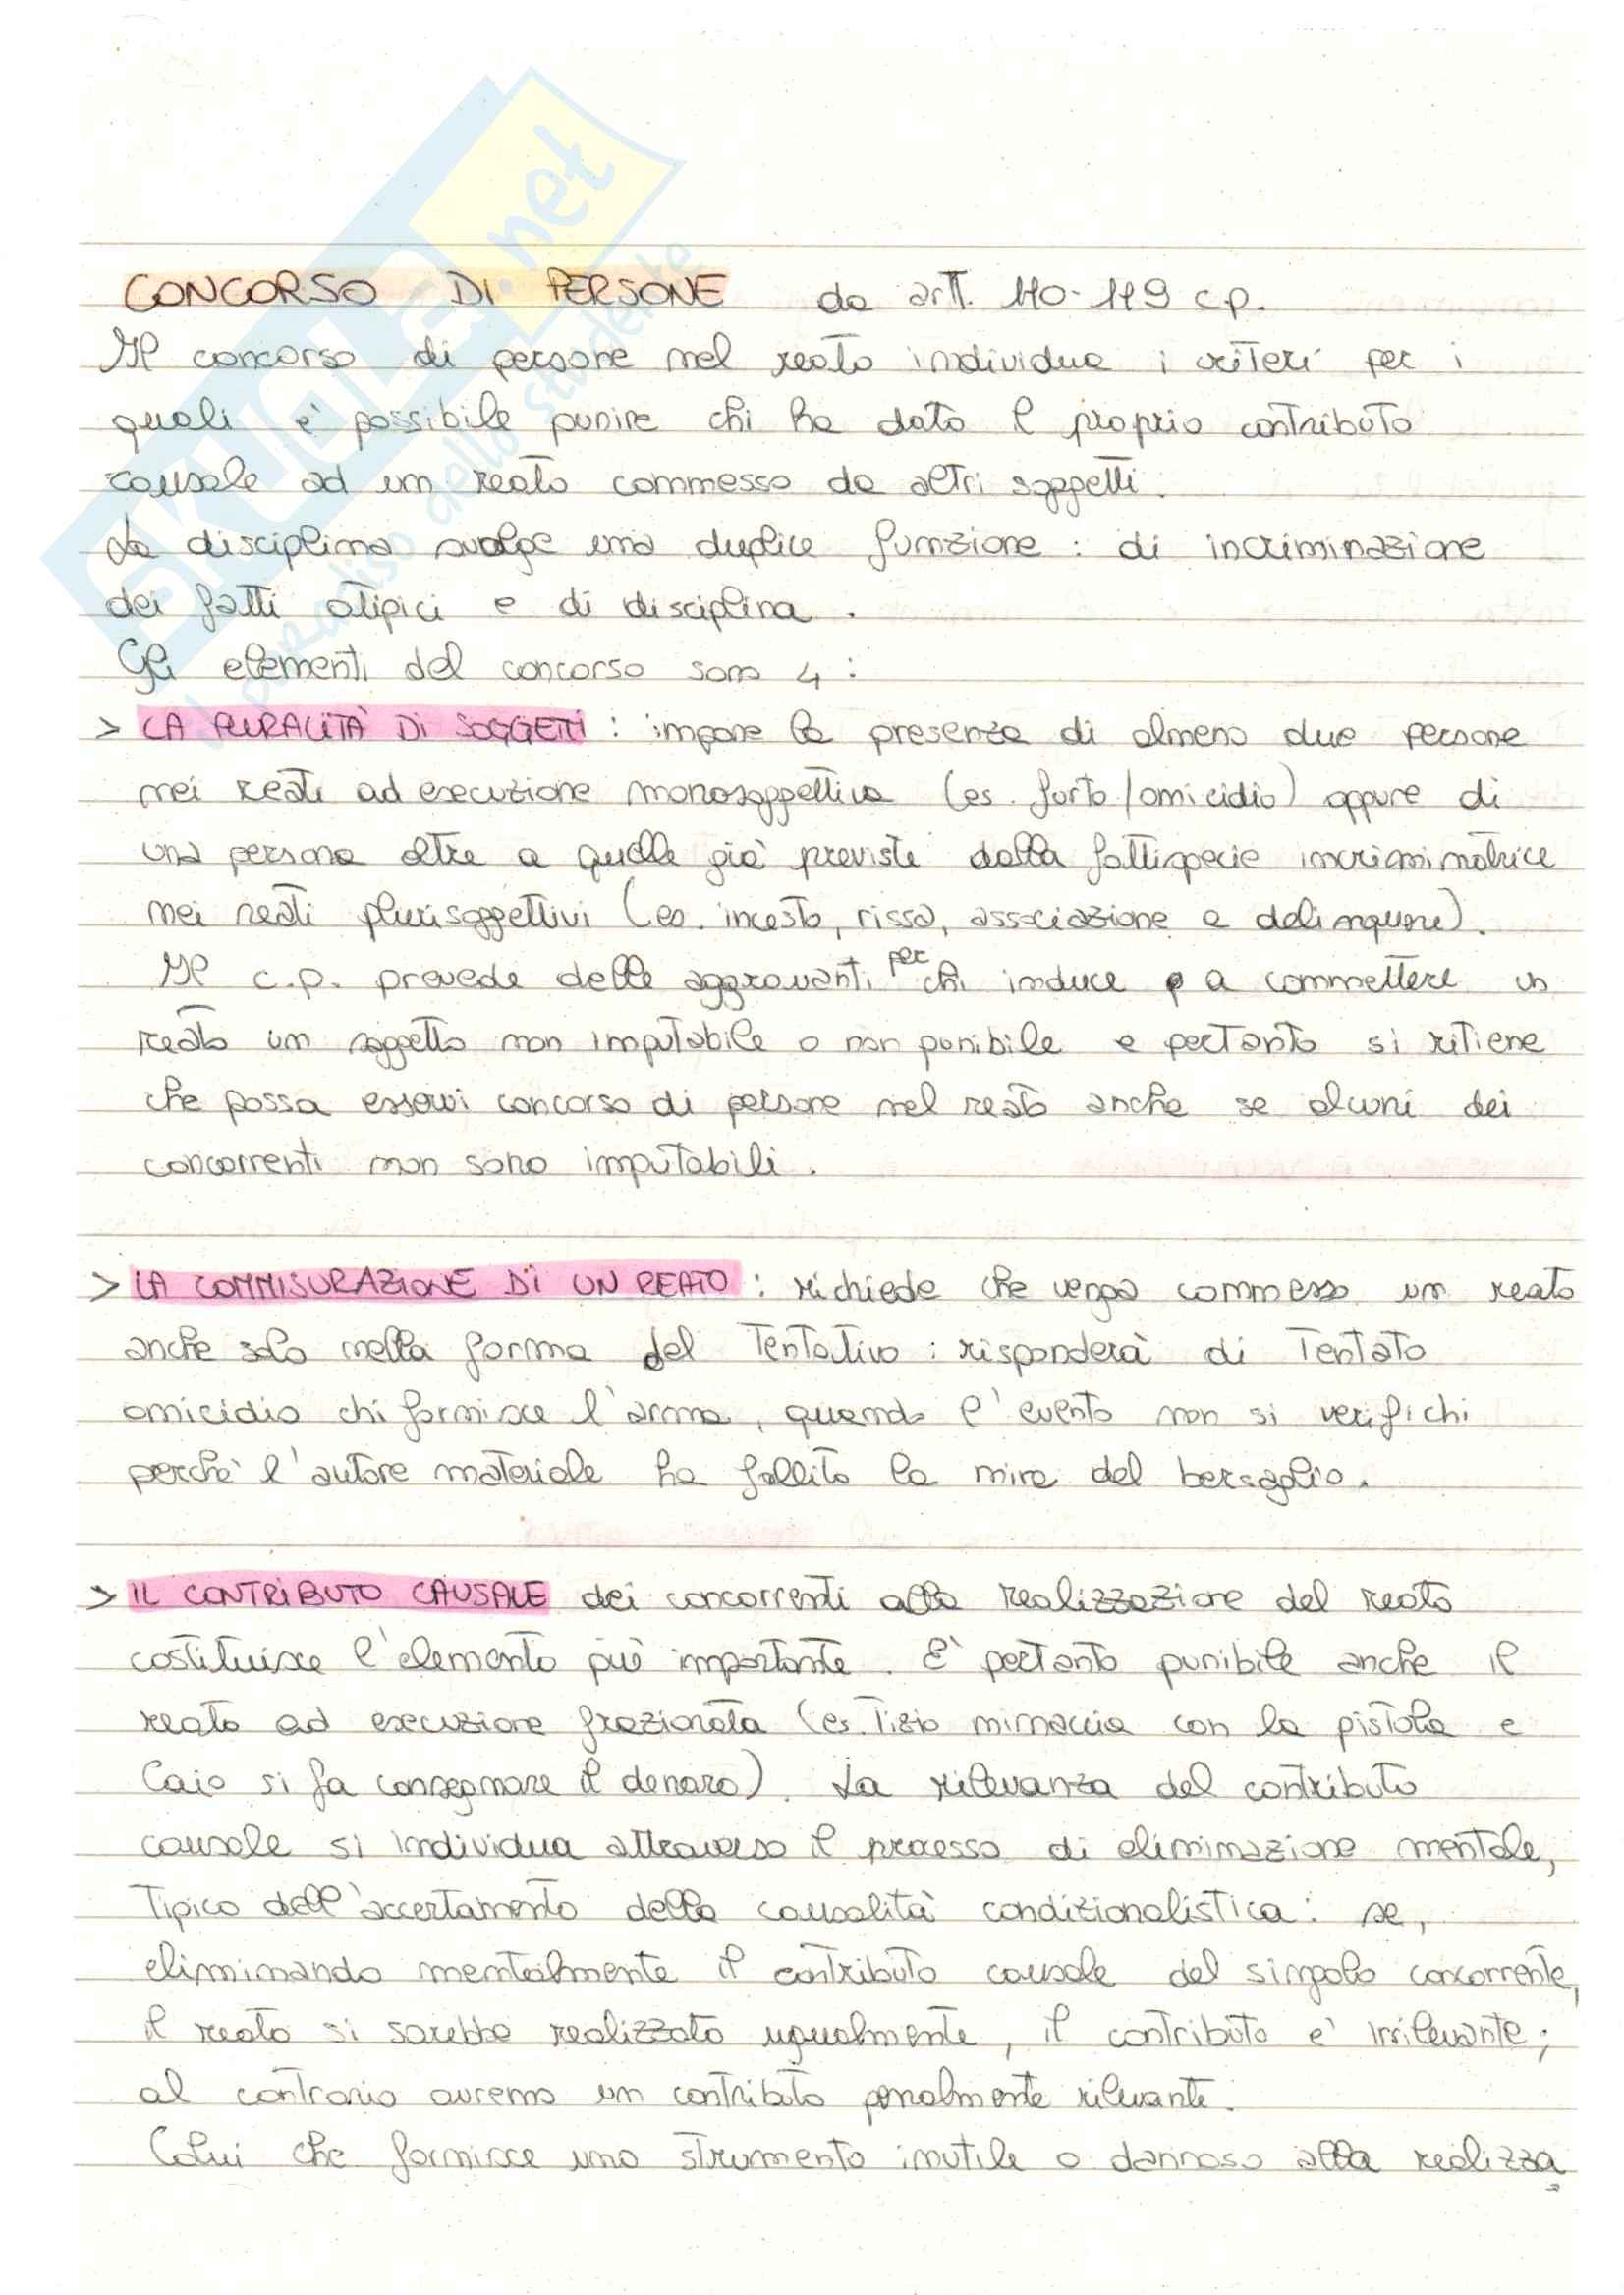 CONCORSO DI PERSONE da artt. 110-119 c.p.
Il concorso di persone nel reato individua i criteri per i
quali è possibile punire chi ha dato il proprio contributo
causale ad un reato commesso da altri soggetti.
La disciplina svolge una duplice funzione : di incriminazione
dei fatti atipici e di disciplina .
Gli elementi del concorso sono 4 :
> LA PLURALITÀ DI SOGGETTI : impone la presenza di almeno due persone
nei reati ad esecuzione monosoggettiva (es. furto/omicidio) oppure di
una persona oltre a quelle già previste dalla fattispecie incriminatrice
nei reati plurisoggettivi (es. incesto, rissa, associazione a delinquere).
Il c.p. prevede delle aggravanti per chi induce a commettere un
reato un soggetto non imputabile o non punibile e pertanto si ritiene
che possa esservi concorso di persone nel reato anche se alcuni dei
concorrenti non sono imputabili .
> LA COMMISURAZIONE DI UN REATO : richiede che venga commesso un reato
anche solo nella forma del Tentativo : risponderà di Tentato
omicidio chi fornisce l'arma, quando l'evento non si verifichi
perchè l'autore materiale ha fallito la mira del bersaglio.
> IL CONTRIBUTO CAUSALE dei concorrenti alla realizzazione del reato
costituisce l'elemento più importante . E' pertanto punibile anche il
reato ad esecuzione frazionata (es. Tizio minaccia con la pistola e
Caio si fa consegnare il denaro). La rilevanza del contributo
causale si individua attraverso il processo di eliminazione mentale,
Tipico dell'accertamento della causalità condizionalistica : se,
eliminando mentalmente il contributo causale del singolo concorrente,
il reato si sarebbe realizzato ugualmente, il contributo e' irrilevante ;
al contrario avremo un contributo penalmente rilevante .
Colui che fornisce uno strumento inutile o dannoso alla realizza
SKUOLA.net
il paradiso dello studente